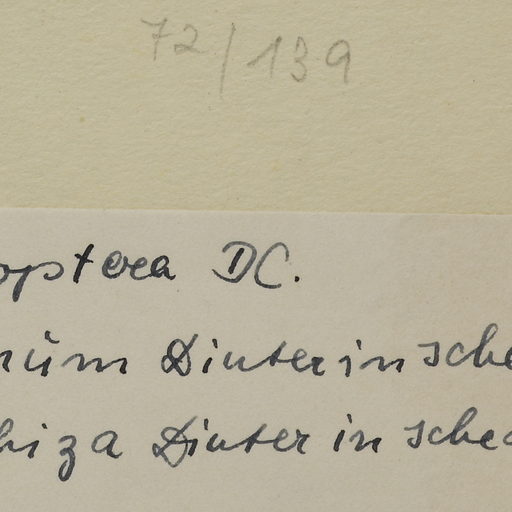 72/139
optera DC.
num Dinter in sche
hiza Dinter in sched